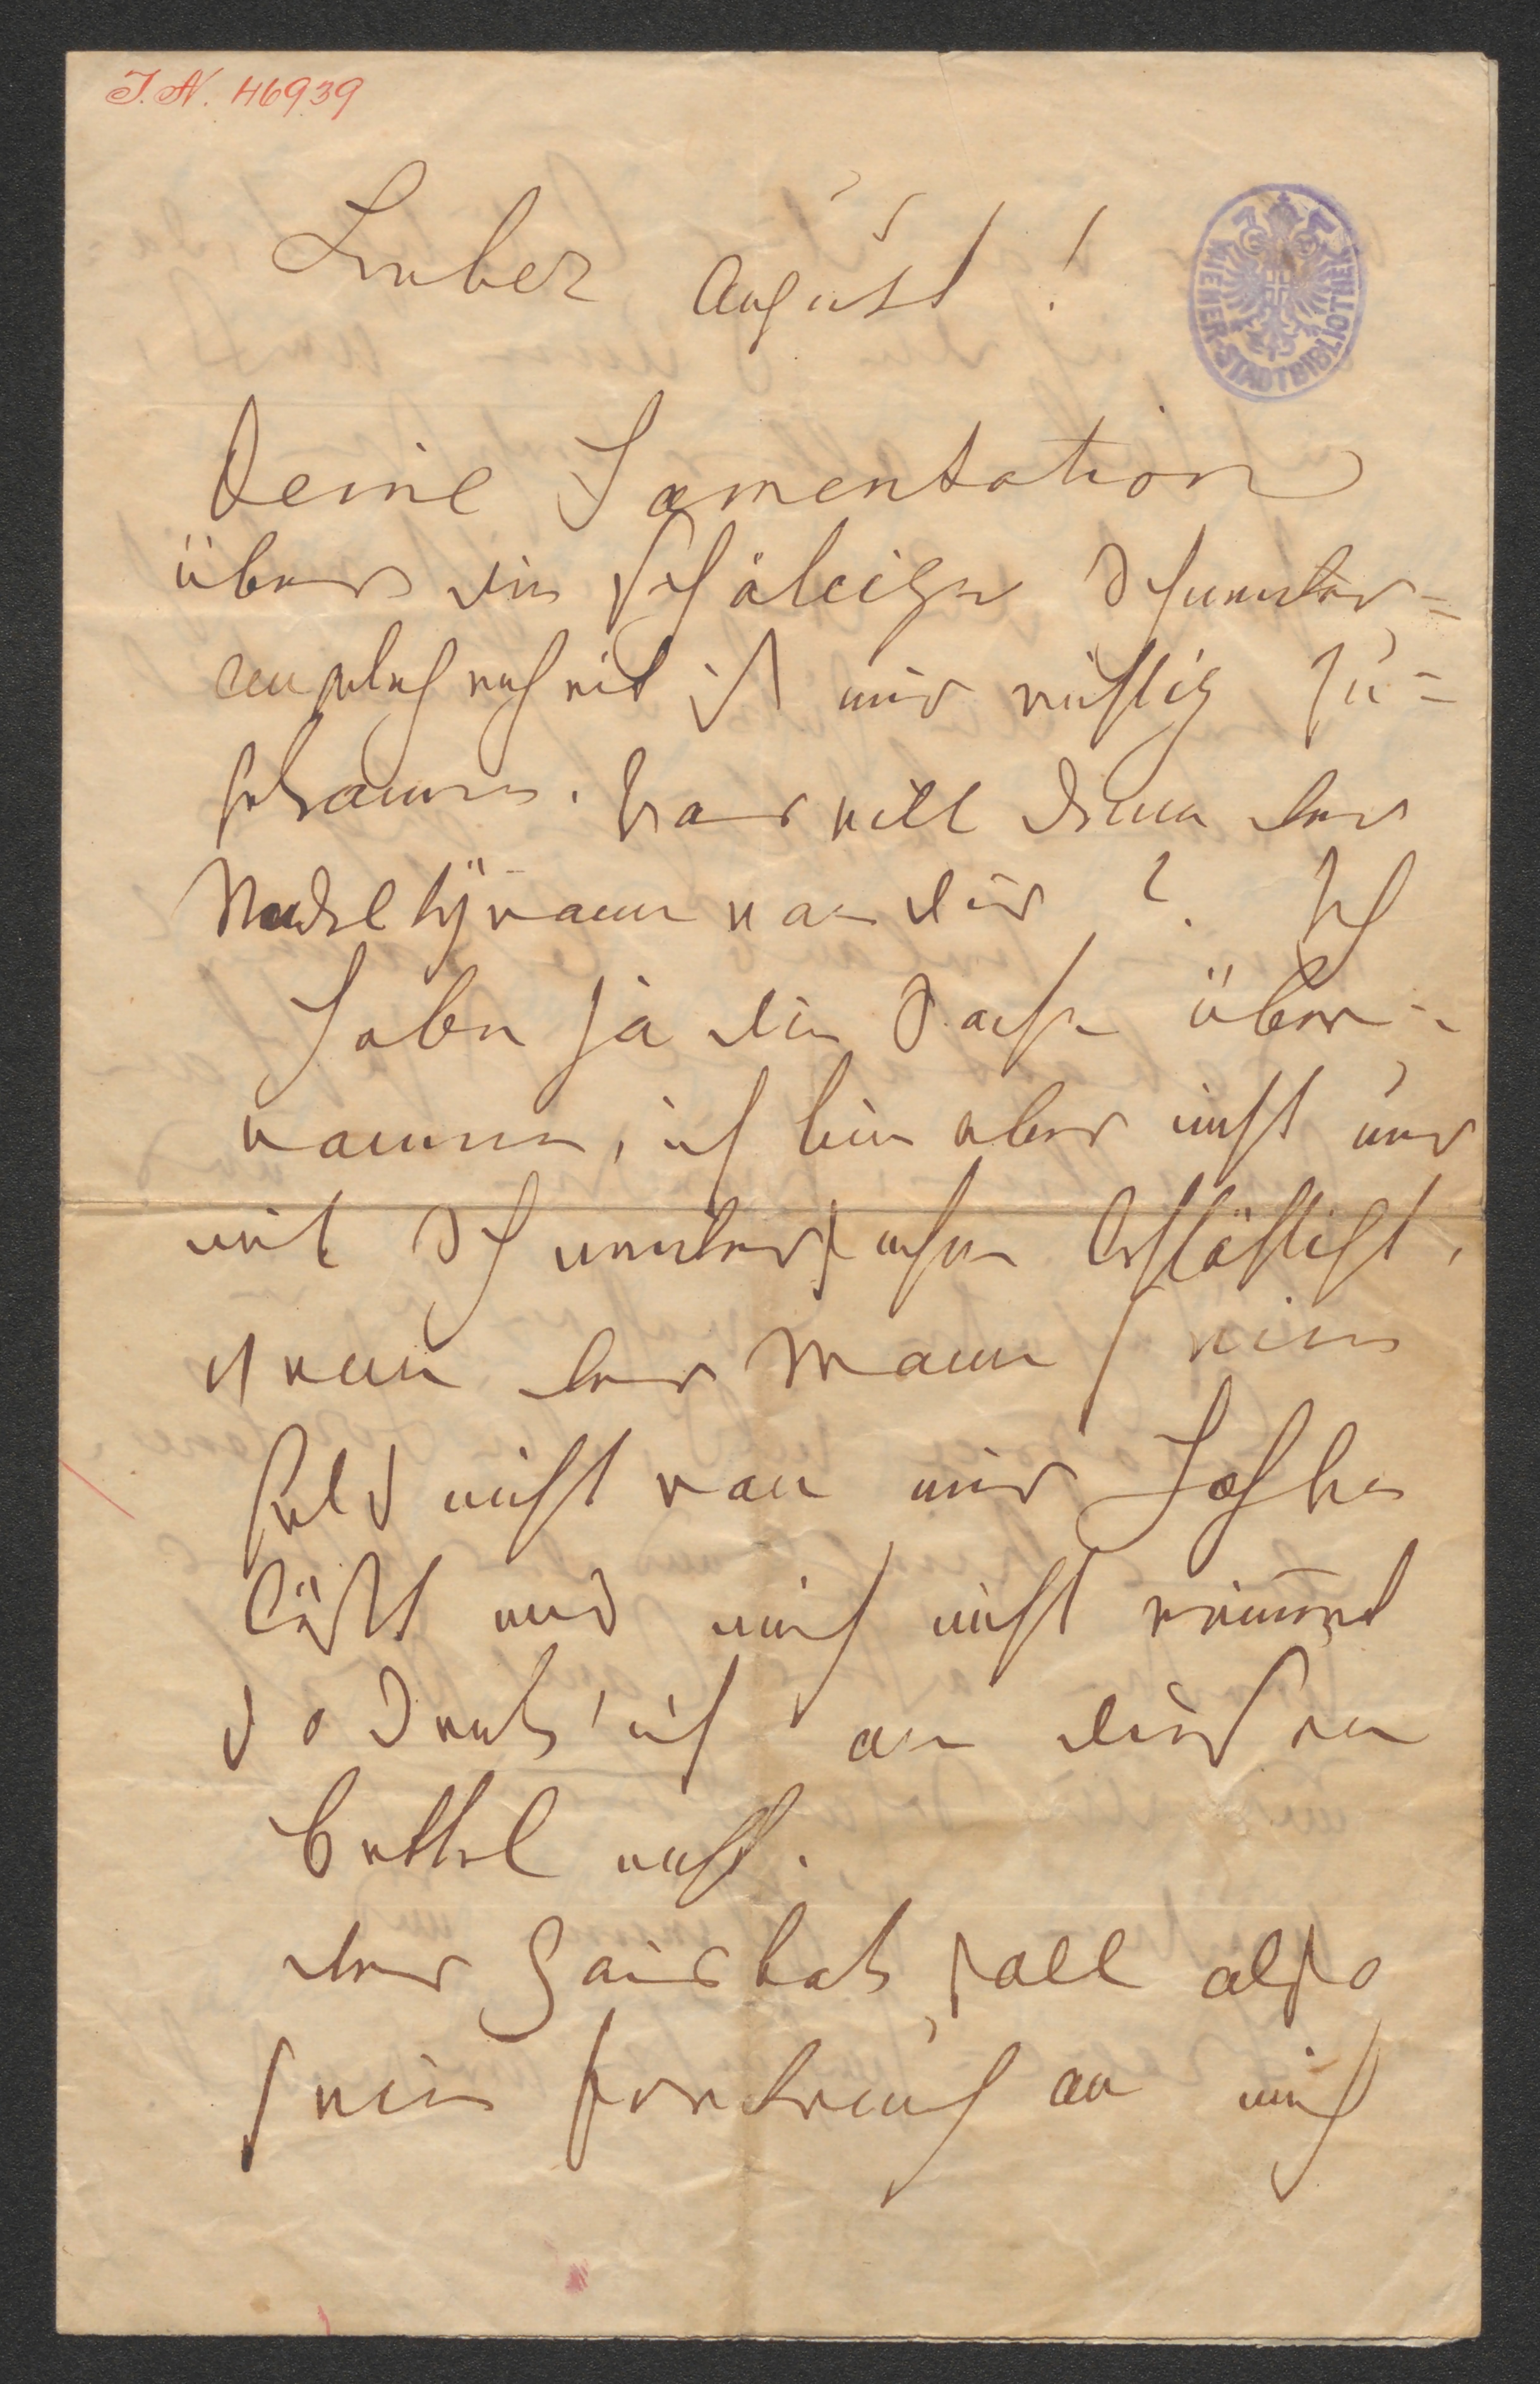 I. N. 46939
WIENER STADTBIBLIOTHEK
Lieber August!
Deine Lamentation
über die schäbige Schneider=
angelegenheit ist mir richtig zu=
gekommen. Was will denn der
Nadeltÿrann von dir? Ich
habe ja die Sache über-
nommen, ich bin aber nicht nur
mit Schneidersachen beschäftigt.
Wenn der Mann sein
Geld nicht von mir hohlen
läßt und mich nicht erinnert
so denk' ich an diesen
Bettel nicht.
Der Gaisbok soll also
sein an mich